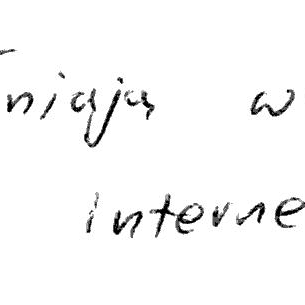 niają w
interne